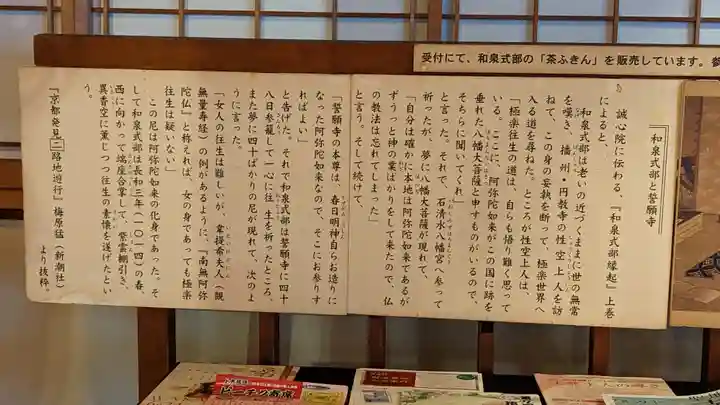 受付にて、和泉式部の「茶ふきん」を販売しています。
『和泉式部と誓願寺
誠心院に伝わる、『和泉式部縁起』上巻
によると、
和泉式部は老いの近づくままに世の無常
を嘆き、播州・円教寺の性空上人を訪
ねて、この身の妄執を断って、極楽世界へ
入る道を尋ねた。ところが性空上人は、
「極楽往生の道は、自らも悟り難く思って
いる。ここに、阿弥陀如来がこの国に跡を
垂れた、八幡大菩薩と申すものがいるので、
そちらに聞いてくれ」
と言った。それで、石清水八幡宮へ参って
祈ったが、夢に八幡大菩薩が現れて、
「自分は確かに本地は阿弥陀如来であるが
ずうっと神の業ばかりをして来たので、仏
の教法は忘れてしまった」
と言う。そして続けて、
「誓願寺の本尊は、春日明神自らお造りに
なった阿弥陀如来なので、そこにお参りす
ればよい」
と告げた。それで和泉式部は誓願寺に四十
八日参籠して一心に往生を祈ったところ、
また夢に四十ばかりの尼が現れて、次のよ
うに言った。
「女人の往生は難しいが、韋提希夫人（観
無量寿経）の例があるように、『南無阿弥
陀仏』と称えれば、女の身であっても極楽
往生は疑いない」
この尼は阿弥陀如来の化身であった。そ
して和泉式部は長和三年（一〇一四）の春、
西に向かって端座合掌して、紫雲棚引き、
異香空に薫じつつ往生の素懐を遂げたとい
う。
『京都発見 二 路地遊行』梅原猛（新潮社）
より抜粋。